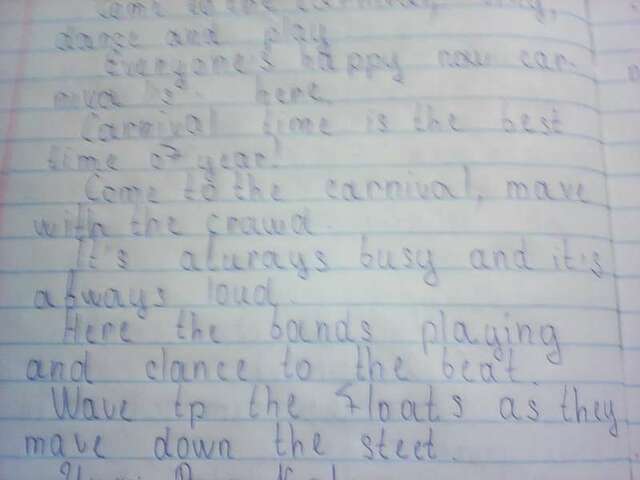 Come to the carnival, sing,
dance and play
Everyone's happy now car-
nival's here.
Carnival time is the best
time of year!
Come to the carnival, mave
with the crawd.
It's aturays busy and it's
abways loud.
Here the bands playing
and clance to the beat.
Wave tp the floats as they
mave down the steet.